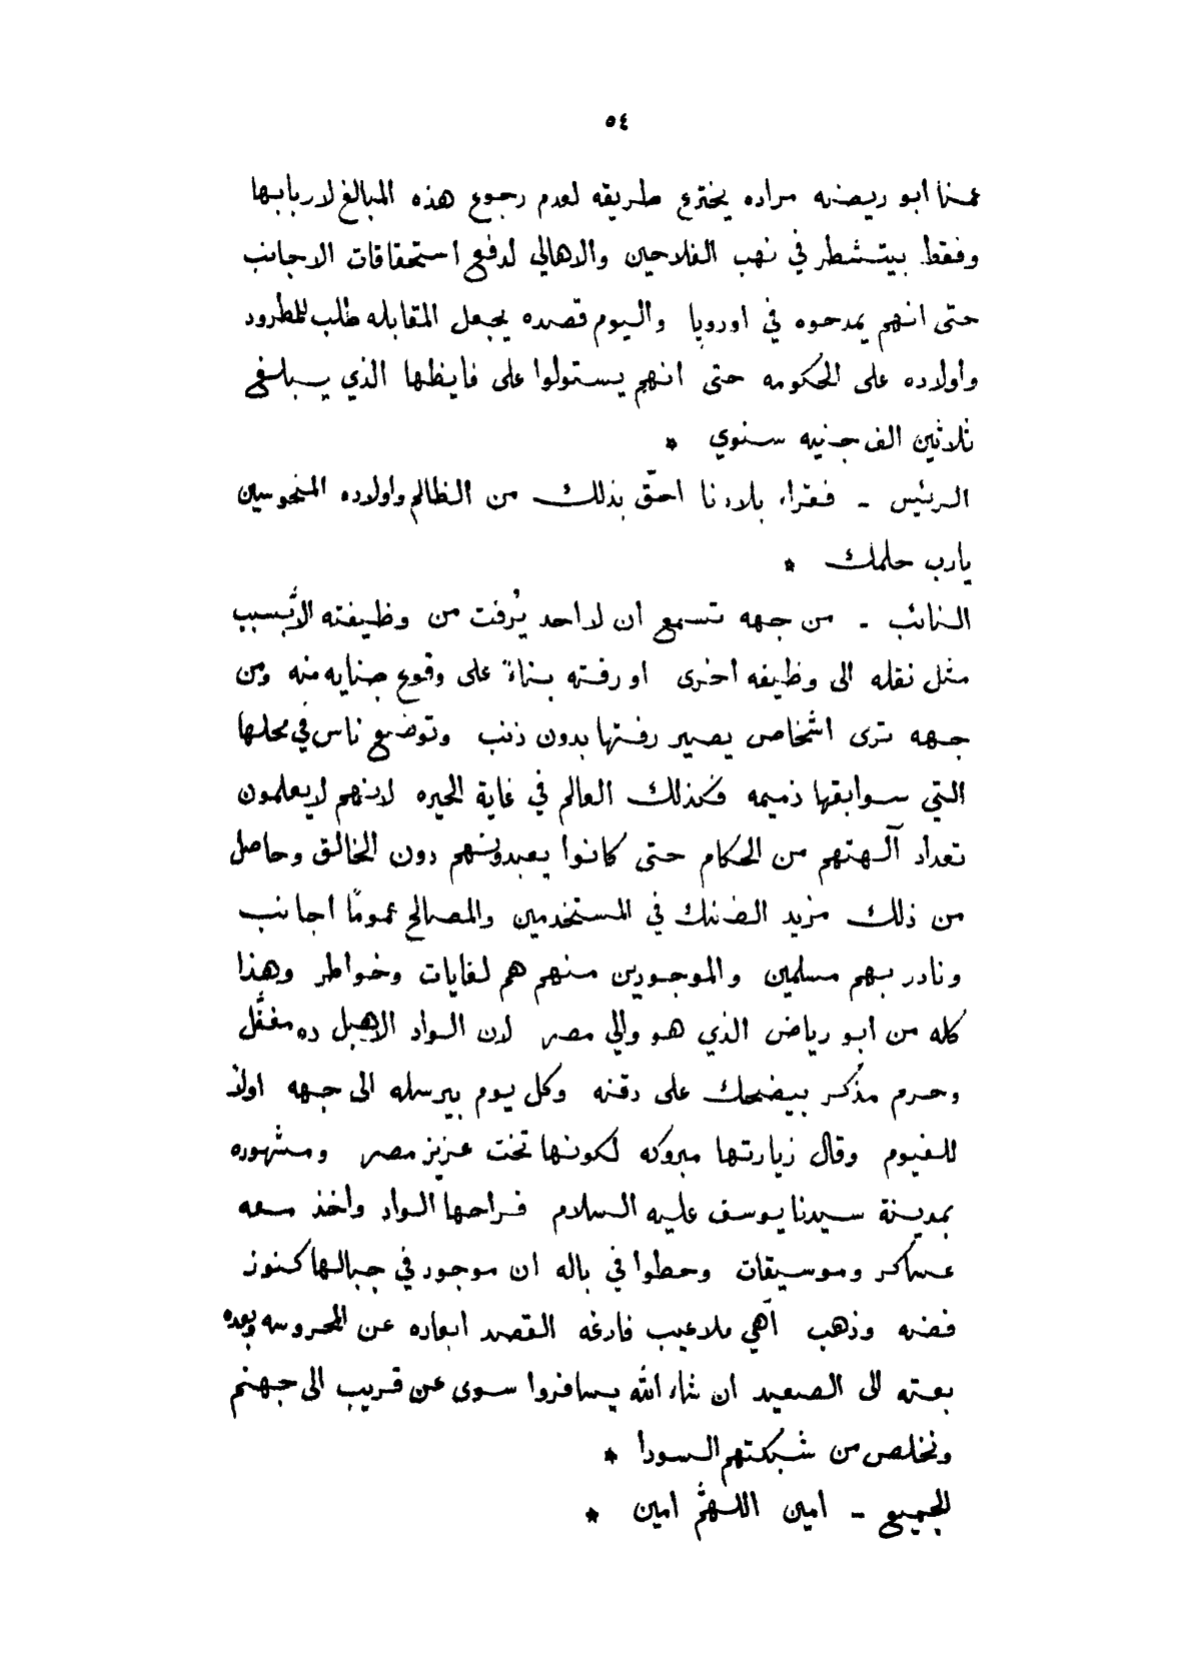 ٥٤
عمنا ابو ريضه مراده يخترع طريقه لعدم رجوع هذه المبالغ لاربابها
وفقط بيتشطر في نهب الفلاحين والاهالي لدفع استحقاقات الاجانب
حتى انهم يمدحوه في اوروپا واليوم قصده يجعل المقابله طلب للمطرود
واولاده على الحكومه حتى انهم يستولوا على فايظها الذي يبلغ
ثلاثين الف جنيه سنوي *
الرئيس - فقراء بلادنا احقّ بذلك من الظالم واولاده المنحوسين
يارب حلمك *
النائب - من جهه تسمع ان لا احد يُرفت من وظيفته الاّ بسبب
مثل نقله الى وظيفه اخرى او رفته بناءً على وقوع جنايه منه ومن
جهه ترى اشخاص يصير رفتها بدون ذنب وتوضع ناس في محلها
التي سوابقها ذميمه فكذلك العالم في غاية الحيره لانهم لا يعلمون
تعداد آلهتهم من الحكام حتى كانوا يعبدونهم دون الخالق وحاصل
من ذلك مزيد الضنك في المستخدمين والمصالح عموماً اجانب
ونادر بهم مسلمين والموجودين منهم هم لغايات وخواطر وهذا
كله من ابو رياض الذي هو والي مصر لان الواد الاهبل ده مغفّل
وحرم مذُكر بيضحك على دقنه وكل يوم بيرسله الى جهه اولاً
للفيوم وقال زيارتها مبروكه لكونها تخت عزيز مصر ومشهوره
بمدينة سيدنا يوسف عليه السلام فراحها الواد واخذ معه
عساكر وموسيقات وحطوا في باله ان موجود في جبالها كنوز
فضه وذهب آهي ملاعيب فارغه القصد ابعاده عن المحروسه وبعده
بعته الى الصعيد ان شاء الله يسافروا سوى عن قريب الى جهنم
ونخلص من شبكتهم السودا *
الجميع - امين اللهمّ امين *